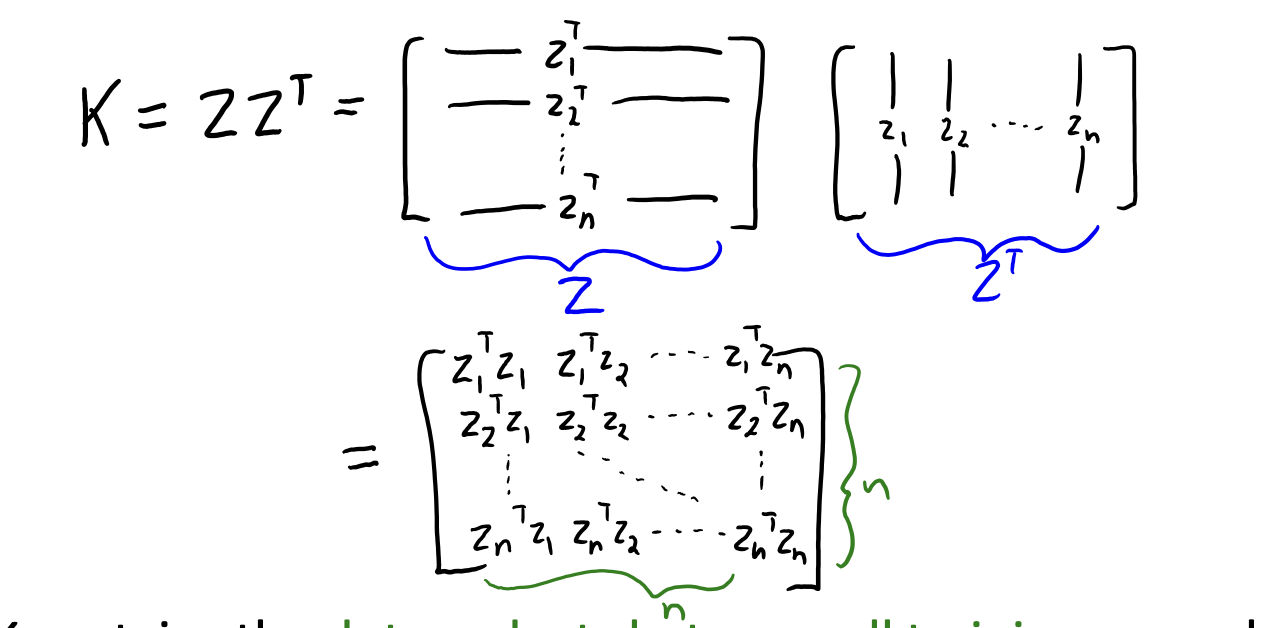 K = ZZᵀ = [ — z₁ᵀ — ] [ | | | ]
[ — z₂ᵀ — ] [ z₁ z₂ ---- zₙ ]
[ — zₙᵀ — ] [ | | | ]
Z Zᵀ
= [ z₁ᵀz₁ z₁ᵀz₂ ---- z₁ᵀzₙ ]
[ z₂ᵀz₁ z₂ᵀz₂ ---- z₂ᵀzₙ ] n
[ zₙᵀz₁ zₙᵀz₂ ---- zₙᵀzₙ ]
n